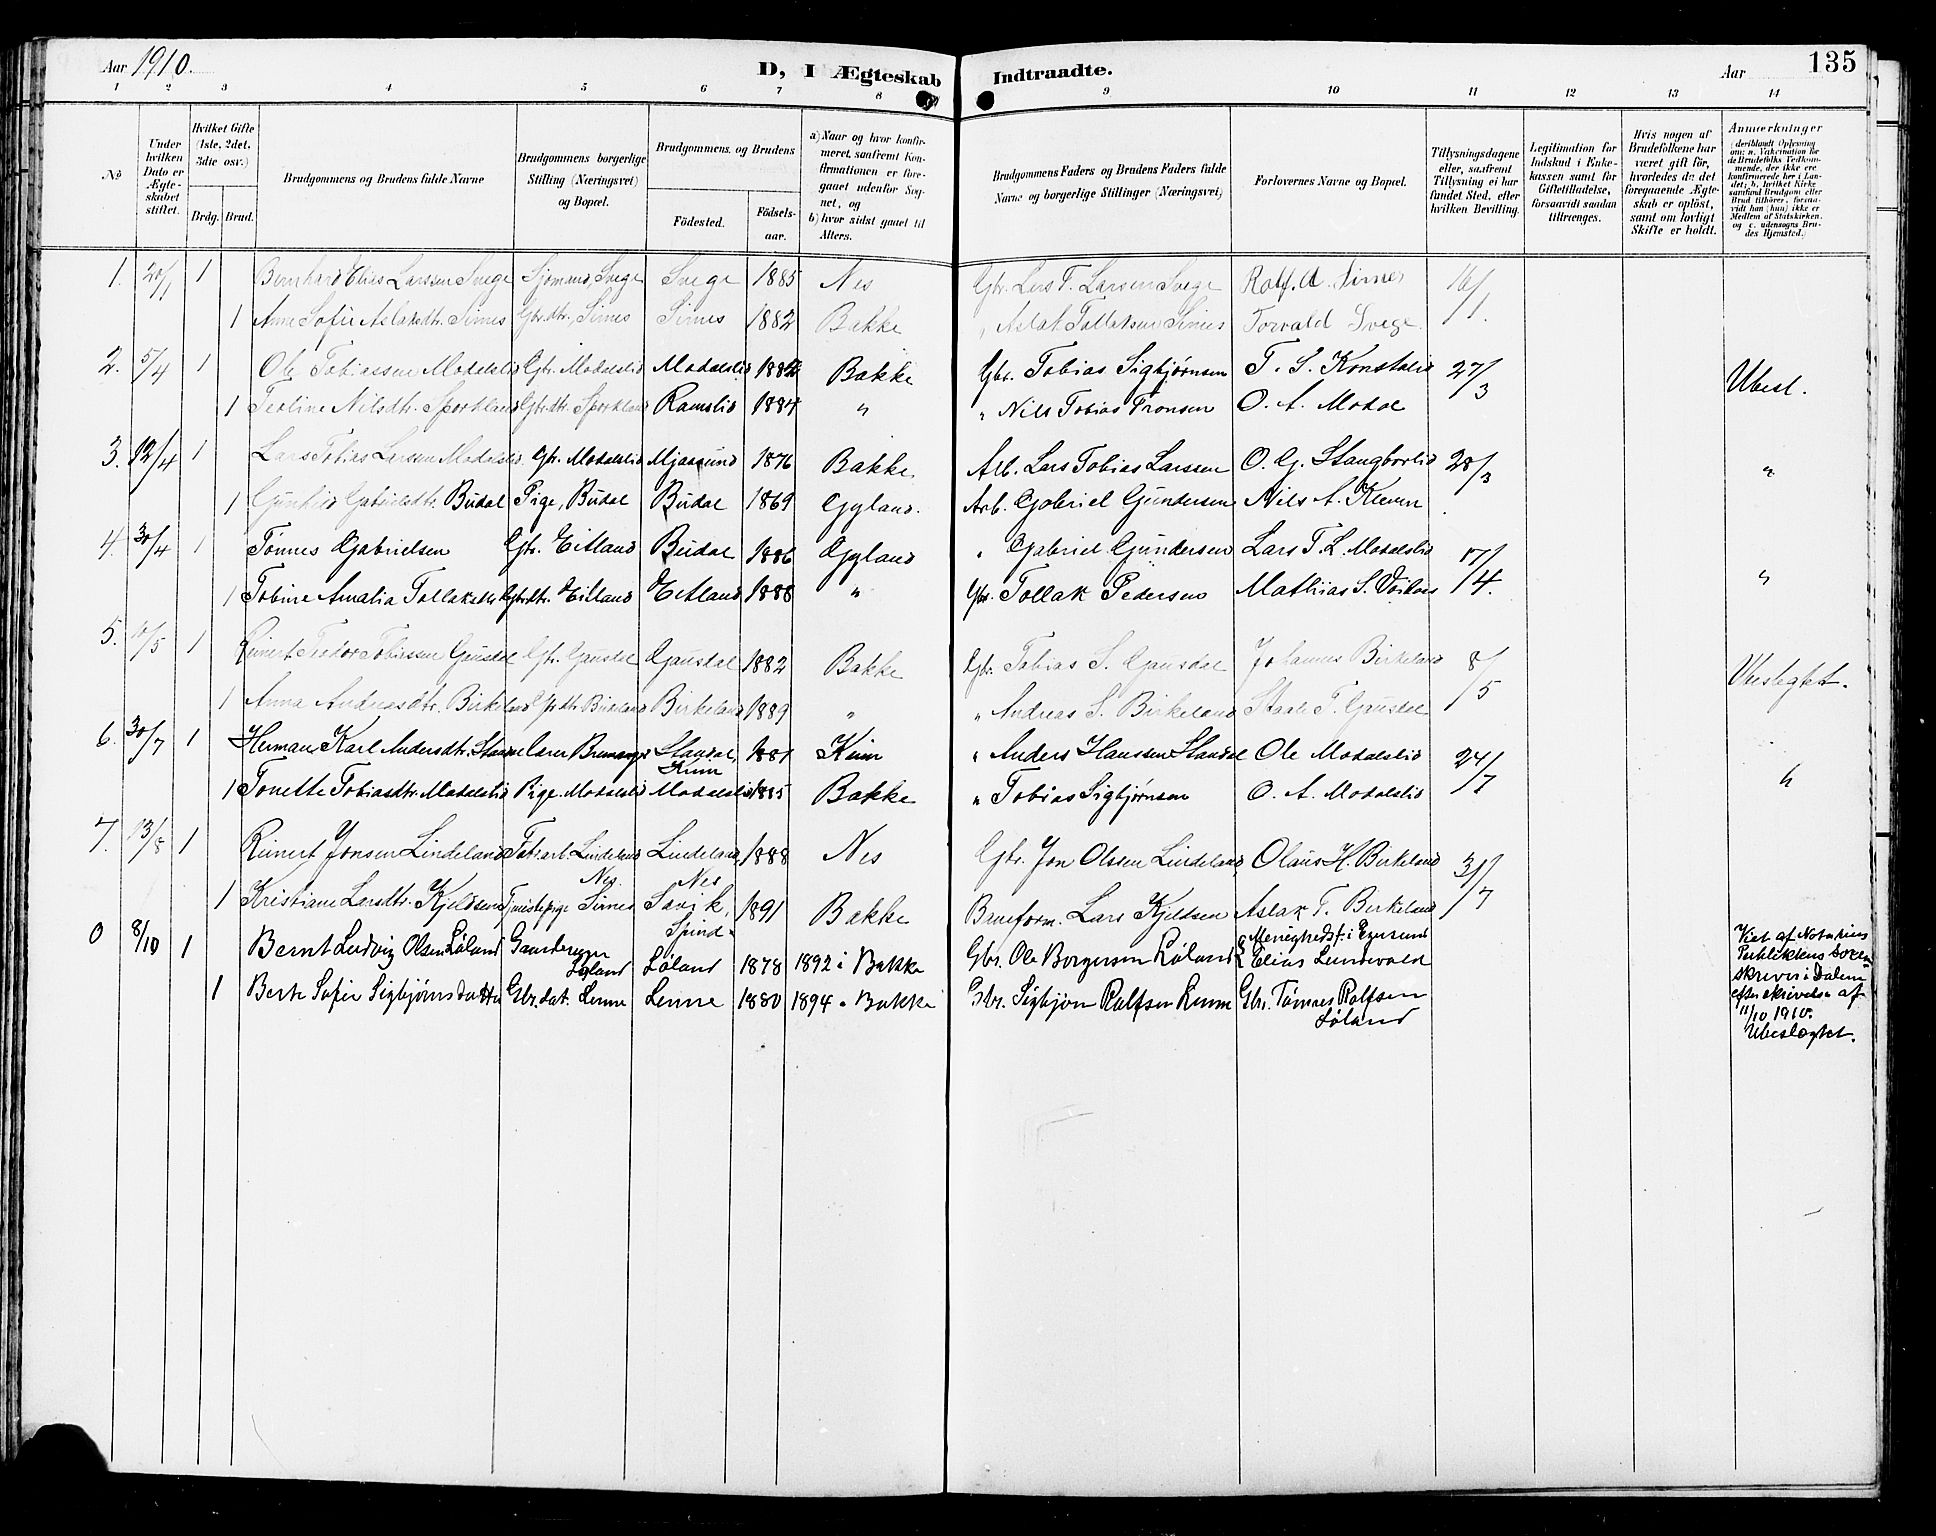 Aar 1910.
D, I Ægteskab Indtraadte.
Aar
135
1 2 3 4 5 6 7 8 9 10 11 12 13 14
No
Under hvilken Dato er Ægteskabet stiftet.
Hvilket Gifte (1ste, 2det, 3die osv.)
Brdg. Brud.
Brudgommens og Brudens fulde Navne
Brudgommens borgerlige Stilling (Næringsvei) og Bopæl.
Brudgommens og Brudens
Fødested.
Fødselsaar.
a) Naar og hvor konfirmeret, saafremt Konfirmationen er foregaaet udenfor Sognet, og
b) hvor sidst gaaet til Alters.
Brudgommens Faders og Brudens Faders fulde Navne og borgerlige Stillinger (Næringsvei)
Forlovernes Navne og Bopæl.
Tillysningsdagene eller, saafremt Tillysning ei har fundet Sted, efter hvilken Bevilling.
Legitimation for Indskud i Enkekassen samt for Giftetilladelse, forsaavidt saadan tiltrænges.
Hvis nogen af Brudefolkene har været gift før, hvorledes da det foregaaende Ægteskab er opløst, samt om lovligt Skifte er holdt.
Anmærkninger (deriblandt Oplysning om: a. Vakcination for de Brudefolks Vedkommende, der ikke ere konfirmerede her i Landet; b. hvilket Kirkesamfund Brudgom eller Brud tilhører, forsaavidt han (hun) ikke er Medlem af Statskirken, og c. udensogns Brudes Hjemsted.)
1. 20/1 1 Bernhard Elias Larssen Svege Sjømand, Svege Svege 1885 Nes Gbr. Lars T. Larsen Svege Rolf. A. Sirnes 16/1.
1 Anne Sofie Aslaksdtr. Sirnes Gbrdtr., Sirnes Sirnes 1882 Bakke " Aslak Tollaksen Sirnes Torvald Svege.
2. 5/4 1 Ole Tobiassen Modalslid Gbr. Modalslid Modalslid 1882 Bakke Gbr. Tobias Sigbjørnsen T. S. Konstalid 27/3 Ubesl.
1 Teoline Nilsdtr. Sporkland Gbrdtr. Sporkland Ramslid 1884 " " Nils Tobias Tronsen O. A. Modal
3. 12/4 1 Lars Tobias Larsen Modalslid Gbr. Modalslid Mjaasund 1876 Bakke Arb. Lars Tobias Larssen O. G. Stangborlid 28/3 "
1 Gunhild Gabrielsdtr. Budal Pige, Budal Budal 1869 Gyland. Arb. Gabriel Gundersen Nils A. Kleven
4. 30/4 1 Tønnes Gabrielsen Gbr. Eitland Budal 1886 Gyland " Gabriel Gundersen Lars T. L. Modalslid 17/4. "
1 Tobine Amalia Tollaksdtr. Gbrdtr. Eitland Eitland 1888 " Gbr. Tollak Pedersen Mathias S.
5. /5 1 Reinert Teodor Tobiassen Gausdal Gbr. Gausdal Gausdal 1882 Bakke Gbr. Tobias S. Gausdal Johannes Birkeland 8/5 Ubeslegtet.
1 Anna Andreasdtr. Birkeland Gbrdtr. Birkeland Birkeland 1889 " " Andreas S. Birkeland Staale T. Gausdal
6. 30/7 1 Herman Karl Andersdtr. Lærer Bremanger Standal, Kinn 1881 Kinn " Anders Hanssen Standal Ole Modalslid 24/7 "
1 Tonette Tobiasdtr. Modalslid Pige. Modalslid Modalslid 1885 Bakke " Tobias Sigbjørnsen O. A. Modalslid
7. 13/8 1 Reinert Jonsen Lindeland Fabrarb. Lindeland Nes. Lindeland, Nes 1888 Nes Gbr. Jon Olsen Lindeland Olaus H. Birkeland 31/7
1 Kristiane Larsdtr. Kjeldsen Tjenestepige Sirnes Savik, Spind 1891 Bakke Baneform. Lars Kjeldsen Aslak T. Birkeland
0 8/10 1 Bernt Ludvig Olsen Løland Gaardbruger Løland Løland 1878 1892 i Bakke Gbr. Ole Borgersen Løland Menighedsf. i Egersund Elias Lundevold
1 Berte Sofie Sigbjørnsdatter Gbr. dat. Lenne Lenne 1880 1894 " Bakke Gbr. Sigbjørn Rolfsen Lenne Gbr. Tønnes Rolfsen Løland
Viet af Notarius Publikus Sorenskriver i Dalene efter skrivelse af 11/10 1910. Ubeslegtet.